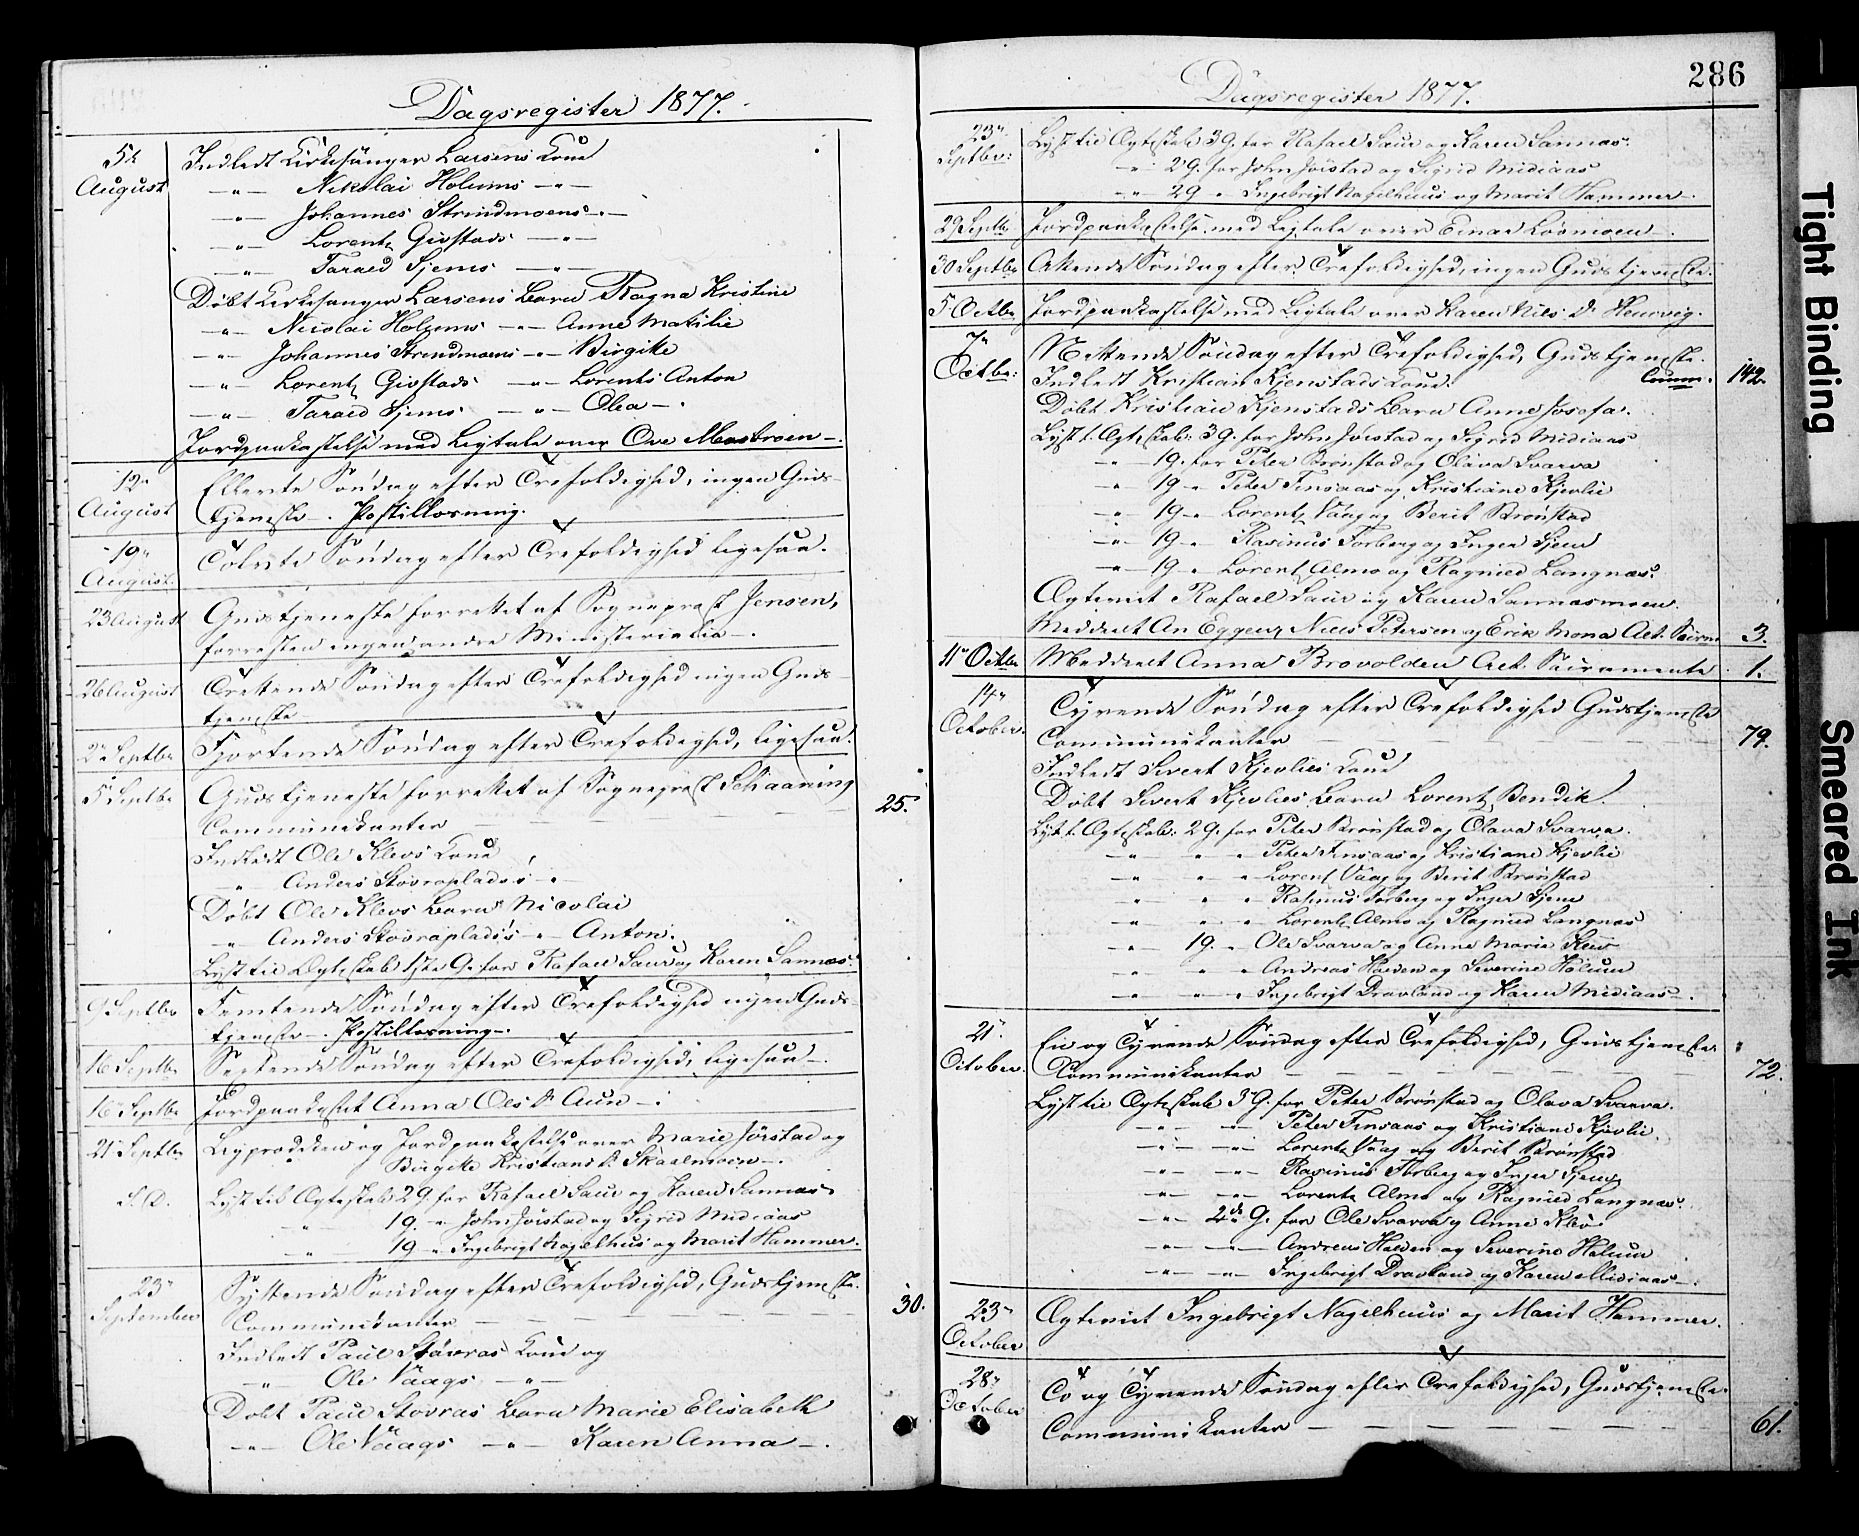 Dagsregister 1877.
5te August
Indledt Kirkesanger Larsens Kone
-"- Nikolai Holums -"-
-"- Johannes Strindmoens -"-
-"- Lorentz Givstads -"-
-"- Tarald Sjems -"-
Døbt Kirkesanger Larsens Barn Ragna Kristine
-"- Nicolai Holums -"- Anne Matilie
-"- Johannes Strindmoens -"- Birgitte
-"- Lorentz Givstads -"- Lorents Anton
-"- Tarald Sjems -"- Olea -.
Jordpaakastelse med Ligtale over Ove Moströen -.
12te August
Ellevte Søndag efter Trefoldighed, ingen Guds-
tjeneste -. Postillæsning.
19de August
Tolvte Søndag efter Trefoldighed ligesaa.
23 August
Gudstjeneste forrettet af Sognepræst Jensen,
forresten ingen andre Ministerialia -.
26 August
Trettende Søndag efter Trefoldighed ingen Guds-
tjeneste
2 Septbr
Fjortende Søndag efter Trefoldighed, ligesaa.
5 Septbr
Gudstjeneste forrettet af Sognepræst Schaaning
Communikanter — — — 25.
Indledt Ole Klevs Kone
-"- Anders Stovraplads's -"-
Døbt Ole Klevs Barn Nicolai
-"- Anders Stovraplads's -"- Anton.
Lyst til Ægteskab 1ste G. for Rafael Saur og Karen Sannæs.
9 Septbr
Femtende Søndag efter Trefoldighed ingen Guds-
tjeneste -. Postillæsning -.
16 Septbr
Sextende Søndag efter Trefoldighed, ligesaa -.
16 Septbr
Jordpaakastet Anna Olsd. Aun -.
21 Septbr
Ligprædiken og Jordpaakastelse over Marie Jörstad og
Birgitte Kristiansd. Skaalmoen -.
S. D.
Lyst til Ægteskab 2 G. for Rafael Saur og Karen Sannæs
" 1 G. " John Jörstad og Sigrid Midiaas
" 1 G " Ingebrigt Nagelhus og Marit Hammer.
23de September
Syttende Søndag efter Trefoldighed, Gudstjeneste.
Communikanter — — — 30.
Indledt Paul Stövras Kone og
-"- Ole Vaags -"-
Døbt Paul Stovras Barn Marie Elisabeth
-"- Ole Vaags -"- Karen Anna -.
286
Dagsregister 1877.
23de Septbr:
Lyst til Ægteskab 3 G. for Rafael Saur og Karen Sannæs.
-"- 2 G. for John Jörstad og Sigrid Midiaas
-"- 2 G " Ingebrigt Nagelhuus og Marit Hammer -.
29 Septbr
Jordpaakastelse med Ligtale over Einar Løvmoen -.
30 Septbr
Attende Søndag efter Trefoldighed, ingen Gudstjeneste.
5 Octbr
Jordpaakastelse med Ligtale over Karen Nilsd.
7de Octbr:
Nittende Søndag efter Trefoldighed, Gudstjeneste.
Indledt Kristian Kjenstads Kone. Comm. 142.
Døbt Kristian Kjenstads Barn Anne Josefa.
Lyst t. Ægteskab: 3 G. for John Jörstad og Sigrid Midiaas
-"- 1 G. for Peter Brønstad og Olava Svarva
-"- 1 G " Peter Finsaas og Kristiane Kjevlie
-"- 1 G " Lorentz Vaag og Berit Brønstad
-"- 1 G " Rasmus Forberg og Inger Sjem
-"- 1 G " Lorentz Almo og Ragnild Langnæs.
Ægteviet Rafael Saur og Karen Sannæsmoen.
Meddeelt An Eggen, Niels Petersen og Erik Mona Alt. Sacrm 3.
11te Octbr
Meddeelt Anna Brovolden Alt. Sacramente 1.
14de October.
Tyvende Søndag efter Trefoldighed Gudstjeneste
Communikanter — — — 79.
Indledt Sivert Kjevlies Kone
Døbt Sivert Kjevlies Barn Lorentz Bendik.
Lyst t. Ægteskab: 2 G. for Peter Brønstad og Olava Svarva.
-"- " " Peter Finsaas og Kristiane Kjevlie
-"- " " Lorentz Vaag og Berit Brønstad
-"- " " Rasmus Forberg og Inger Sjem
-"- " " Lorentz Almo og Ragnild Langnæs
-"- 1 G. " Ole Svarva og Anne Marie Klev
-"- " " Andreas Halden og Severine Holum
-"- " " Ingebrigt Dravland og Karen Midiaas -.
21de October.
En og Tyvende Søndag efter Trefoldighed, Gudstjeneste.
Communikanter — — — 72.
Lyst til Ægteskab 3 G. for Peter Brønstad og Olava Svarva.
-"- -"- Peter Finsaas og Kristiane Kjevlie.
-"- -"- Lorentz Vaag og Berit Brønstad
-"- -"- Rasmus Forberg og Inger Sjem
-"- -"- Lorentz Almo og Ragnild Langnæs.
-"- 2de G. for Ole Svarva og Anne Klev.
-"- -"- Andreas Halden og Severine Holum
-"- -"- Ingebrigt Dravland og Karen Midiaas -.
23de October
Ægteviet Ingebrigt Nagelhuus og Marit Hammer.
28de October
To og Tyvende Søndag efter Trefoldighed, Gudstjeneste.
Communikanter — — — 61.
Tight Binding
Smeared Ink